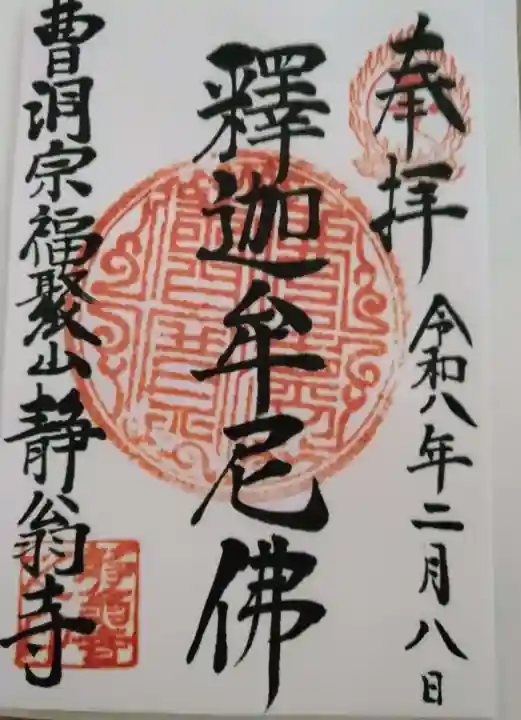 奉拝
令和八年二月八日
釋迦牟尼佛
曹洞宗福聚山静翁寺